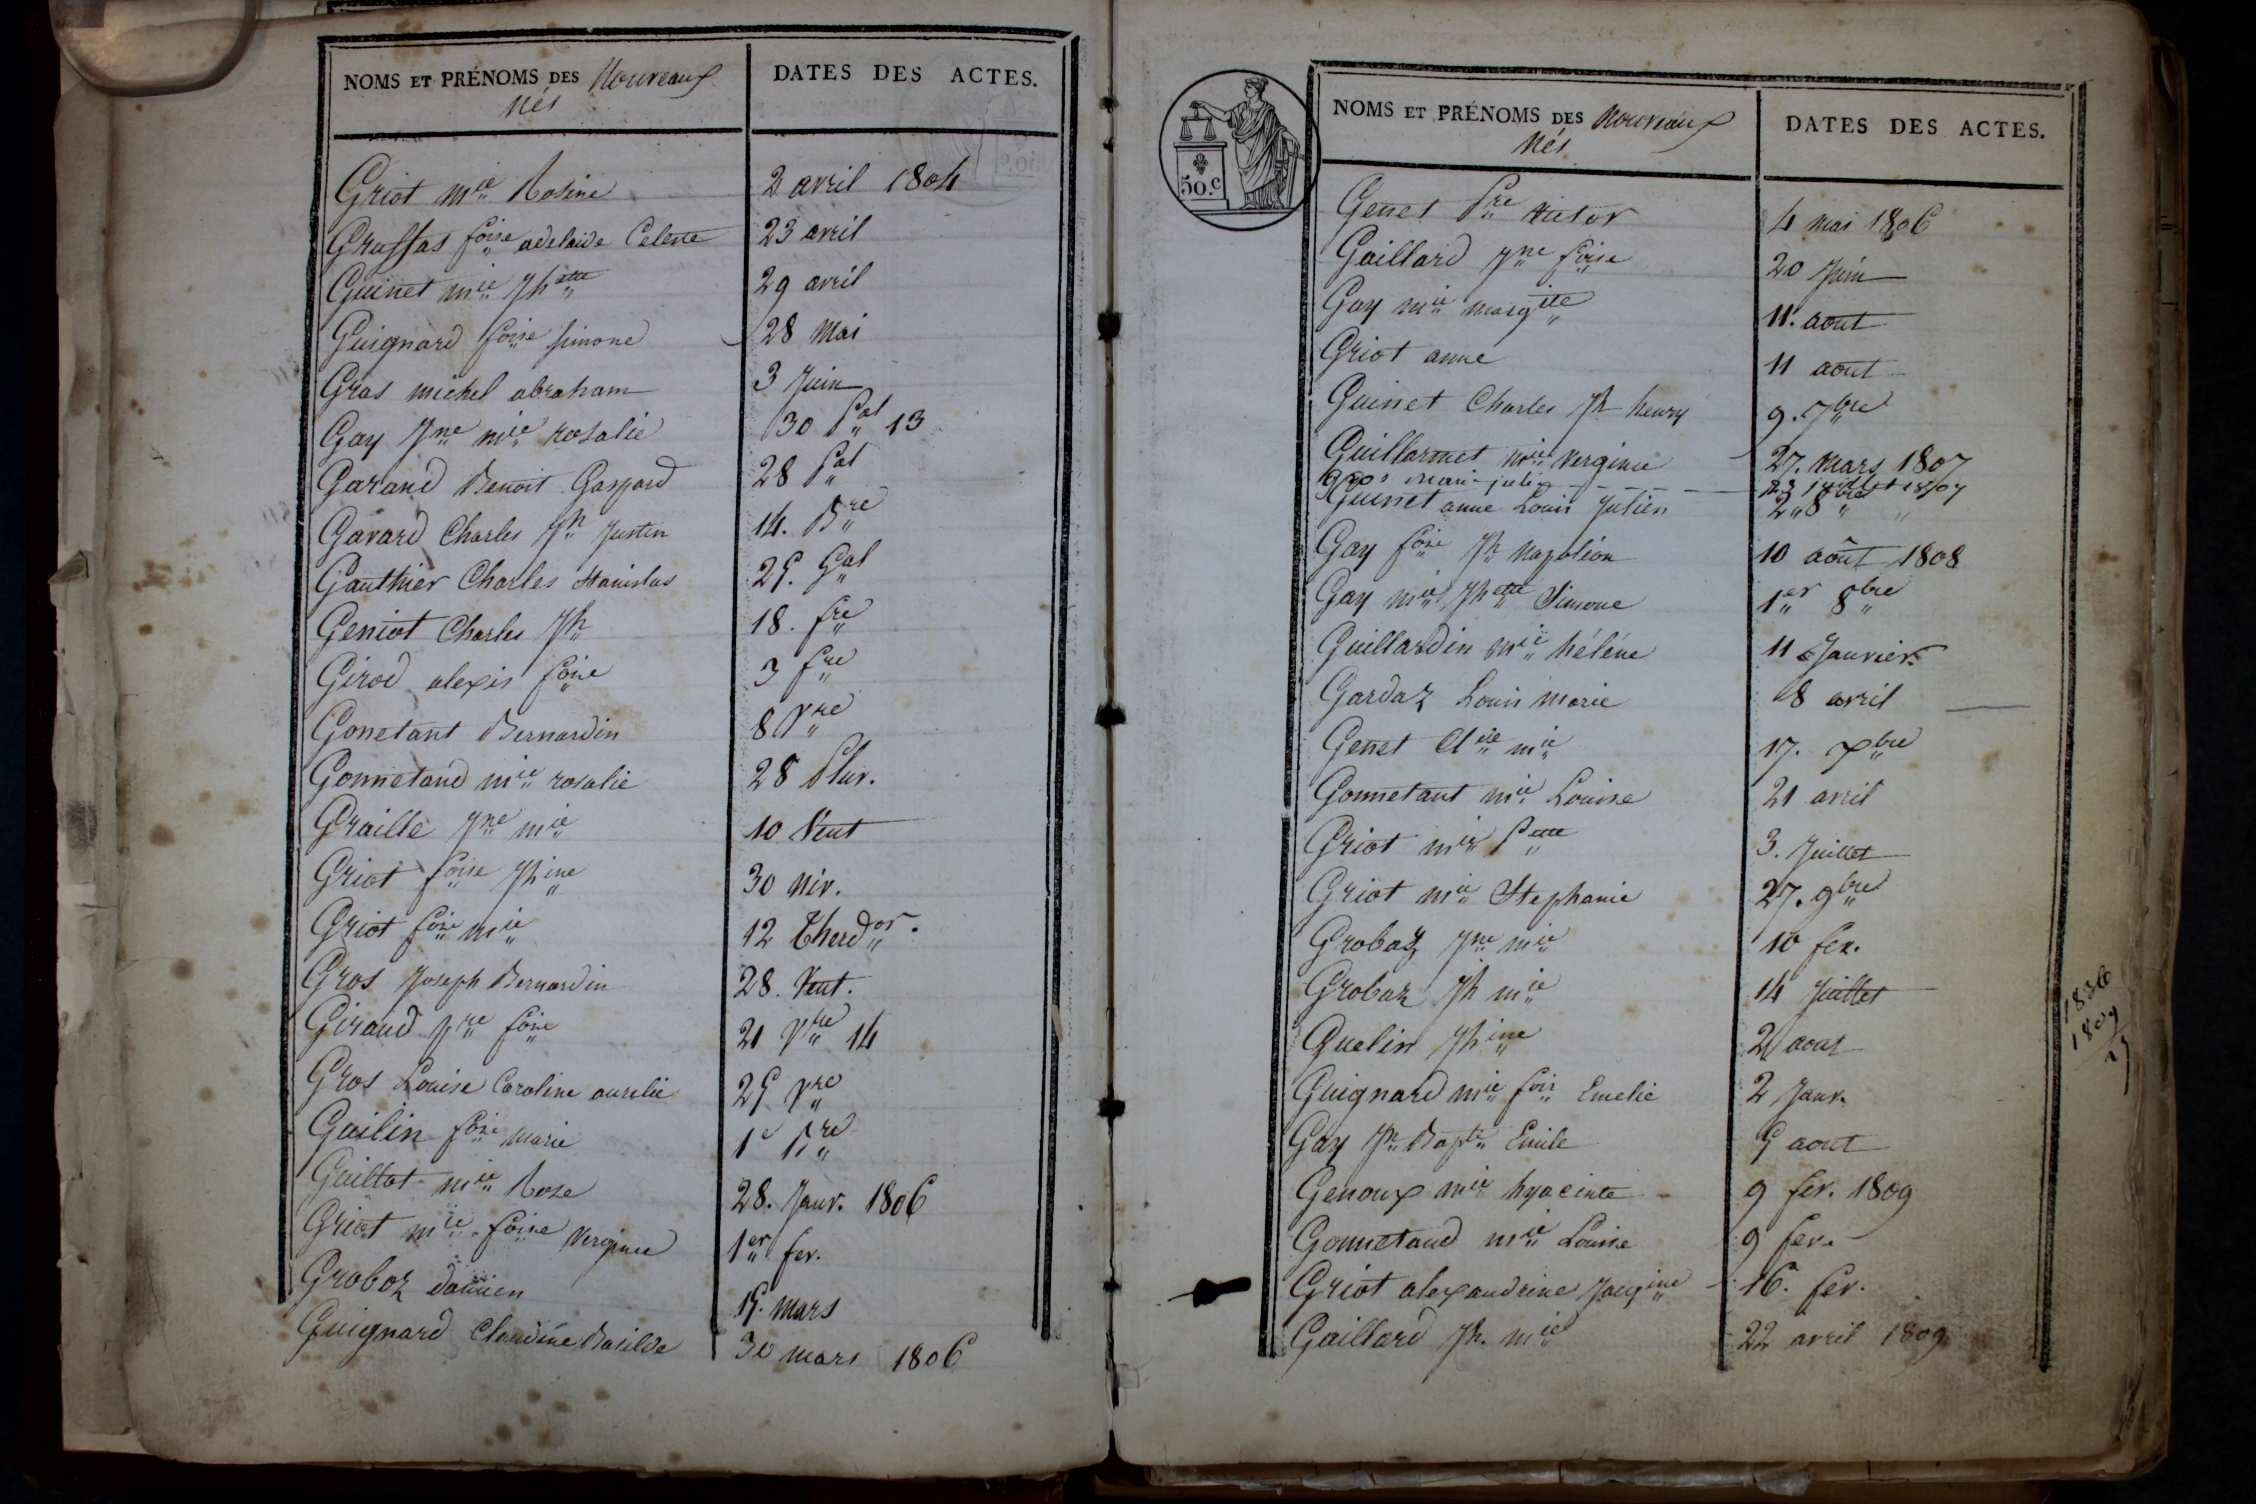 NOMS ET PRÉNOMS DES Nouveaux
Nés
DATES DES ACTES.
Griot mie Rosine 2 avril 1804
Grassas foise adelaide Celeste 23 avril
Guinet mie Jhette 29 avril
Guignard foise simone 28 Mai
Gras michel abraham 3 Juin
Gay Jne mie rosalie 30 Pal 13
Garand Benoit Gaspard 28 Pal
Gavard Charles Jh Justin 14. Bre
Gauthier Charles Stanislas 25. Gal
Geniot Charles Jh 18. fre
Girod alexis foise 3 fre
Gonetant Bernardin 8 Vre
Gonnetand mie rosalie 28 Pluv.
Graille Jne mie 10 Vent
Griot foise Jhine 30 Niv.
Griot foise mie 12 Therdor.
Gros Joseph Bernardin 28. Vent.
Giraud Pre foise 21 Vre 14
Gros Louise Caroline aurelie 25 Vre
Guilin foise marie 1e Bre
Guillot mie Rose 28. Janv. 1806
Griot mie foise Verginie 1er fev.
Groboz damien 15. mars
Guignard Claudine Basilde 30 mars 1806
50.c
NOMS ET PRÉNOMS DES Nouveaux
Nés
DATES DES ACTES.
Genet Pre Victor 4 mai 1806
Gaillard Jne foise 20 Juin
Gay mie margite 11. aout
Griot anne 11 aout
Guinet Charles Jh henry 9. 7bre
Guillermet mie Verginie 27. Mars 1807
gros marie julie 23 juillet 1807
Guinet anne Louis Julien 2 8bre "
Gay foise Jh Napoléon 10 août 1808
Gay mie Jhette Simone 1er 8bre
Guillardin mie hélène 11 Janvier.
Gardaz Louis Marie 8 avril
Genet Clde mie 17. xbre
Gonnetant mie Louise 21 avril
Griot mie Pette 3. Juillet
Griot mie Stephanie 27. 9bre
Grobaz Jne mie 10 fev.
Grobaz Jh mie 14 Juillet
Guelin Jhine 2 aout
Guignard mie fois Emelie 2 Janv.
Gay Jn Bapte Emile 5 aout
Genoux mie hyacinte 9 fev. 1809
Gonnetand mie Louise 9 fev.
Griot alexandrine Jaqine 16. fev.
Gaillard Jh. mie 22 avril 1809
1836
1809